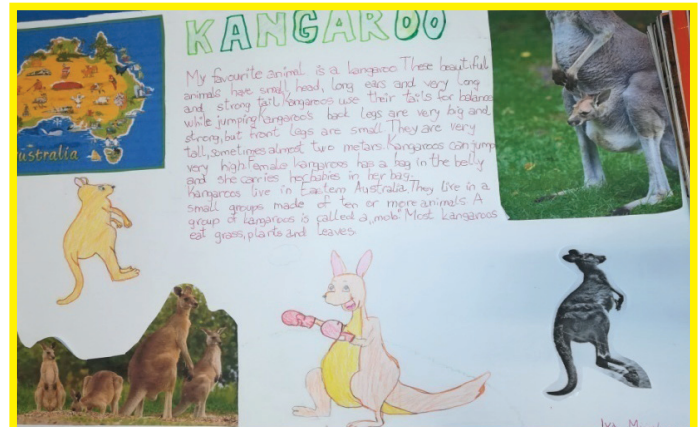 KANGAROO
My favourite animal is a kangaroo. These beautiful
animals have small head, long ears and very long
and strong tail. Kangaroos use their tails for balance
while jumping. Kangaroo's back legs are very big and
strong, but front legs are small. They are very
tall, sometimes almost two metars. Kangaroos can jump
very high. Female kangaroos has a bag in the belly
and she carries her babies in her bag.
Kangaroos live in Eastern Australia. They live in a
small groups made of ten or more animals. A
group of kangaroos is called a „mob". Most kangaroos
eat grass, plants and leaves.
ustralia